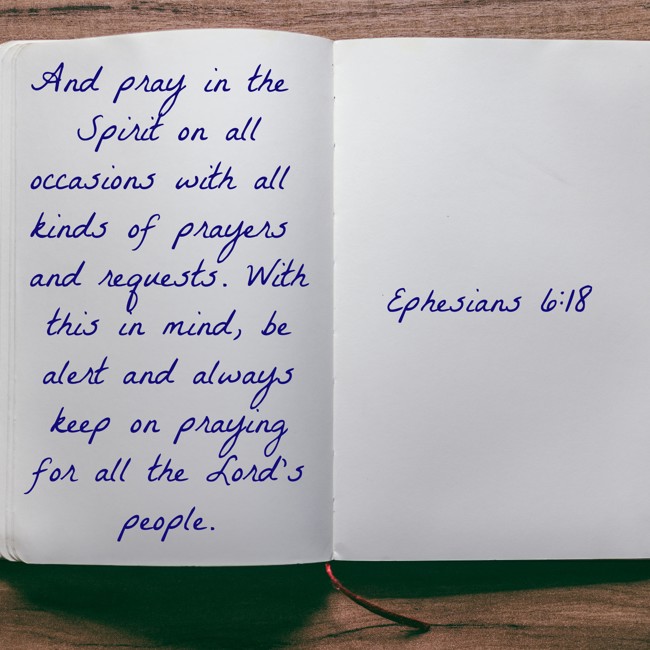 And pray in the
Spirit on all
occasions with all
kinds of prayers
and requests. With
this in mind, be
alert and always
keep on praying
for all the Lord's
people.
Ephesians 6:18